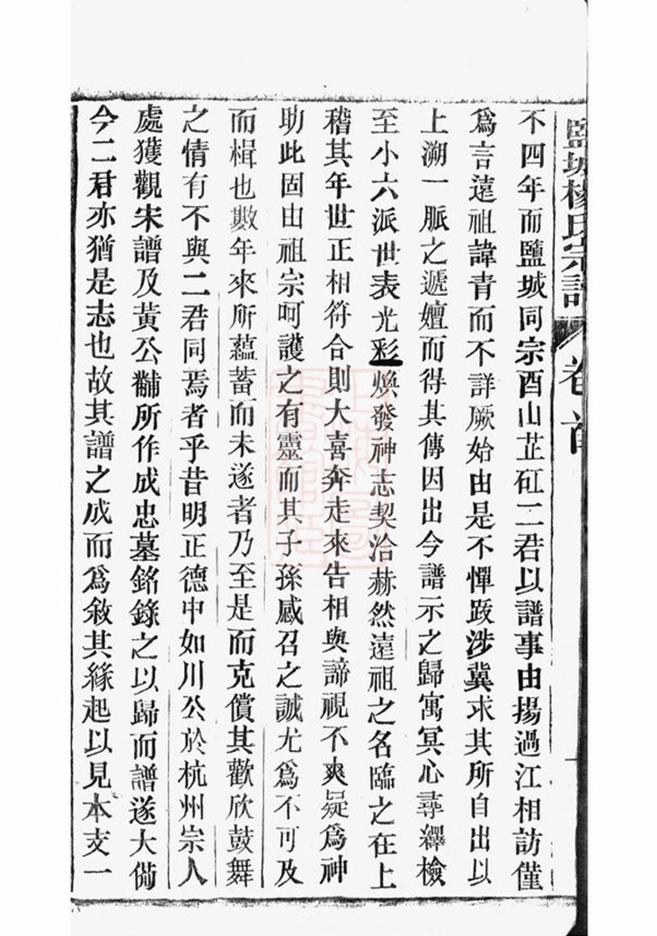 鹽城楊氏宗譜 卷首
不四年而鹽城同宗酉山芷矼二君以譜事由揚過江相訪僅
爲言遠祖諱青而不詳厥始由是不憚跋涉冀求其所自出以
上溯一脈之遞嬗而得其傳因出今譜示之歸寓冥心尋繹檢
至小六派世表光彩煥發神志契洽赫然遠祖之名臨之在上
稽其年世正相符合則大喜奔走來告相與諦視不爽疑爲神
助此固由祖宗呵護之有靈而其子孫感召之誠尤爲不可及
而楫也數年來所蘊蓄而未遂者乃至是而克償其歡欣鼓舞
之情有不與二君同焉者乎昔明正德中如川公於杭州宗人
處獲觀宋譜及黃公黼所作成忠墓銘錄之以歸而譜遂大備
今二君亦猶是志也故其譜之成而爲敘其緣起以見本支一